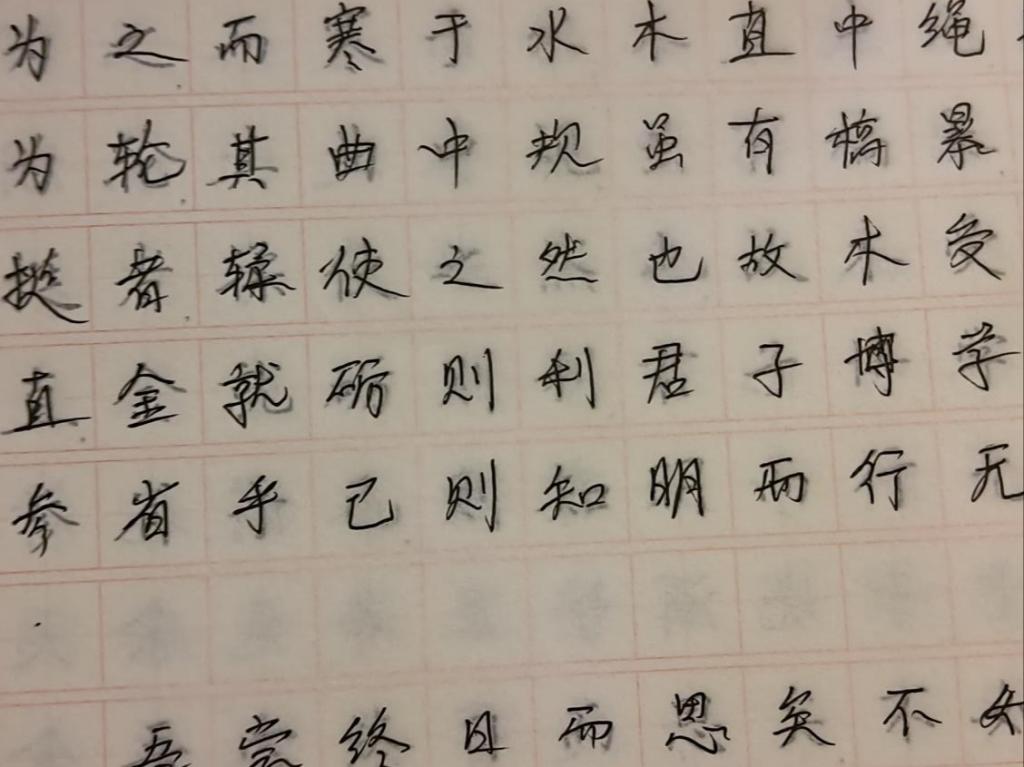 为之而寒于水木直中绳
为轮其曲中规虽有槁暴
挺者輮使之然也故木受
直金就砺则利君子博学
参省乎己则知明而行无
吾尝终日而思矣不如